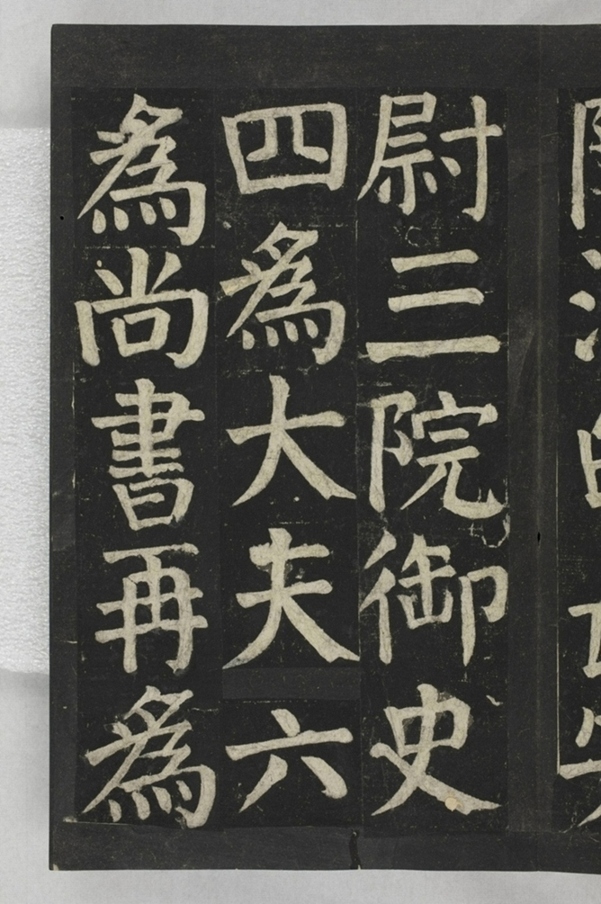 尉三院御史
四為大夫六
為尚書再為